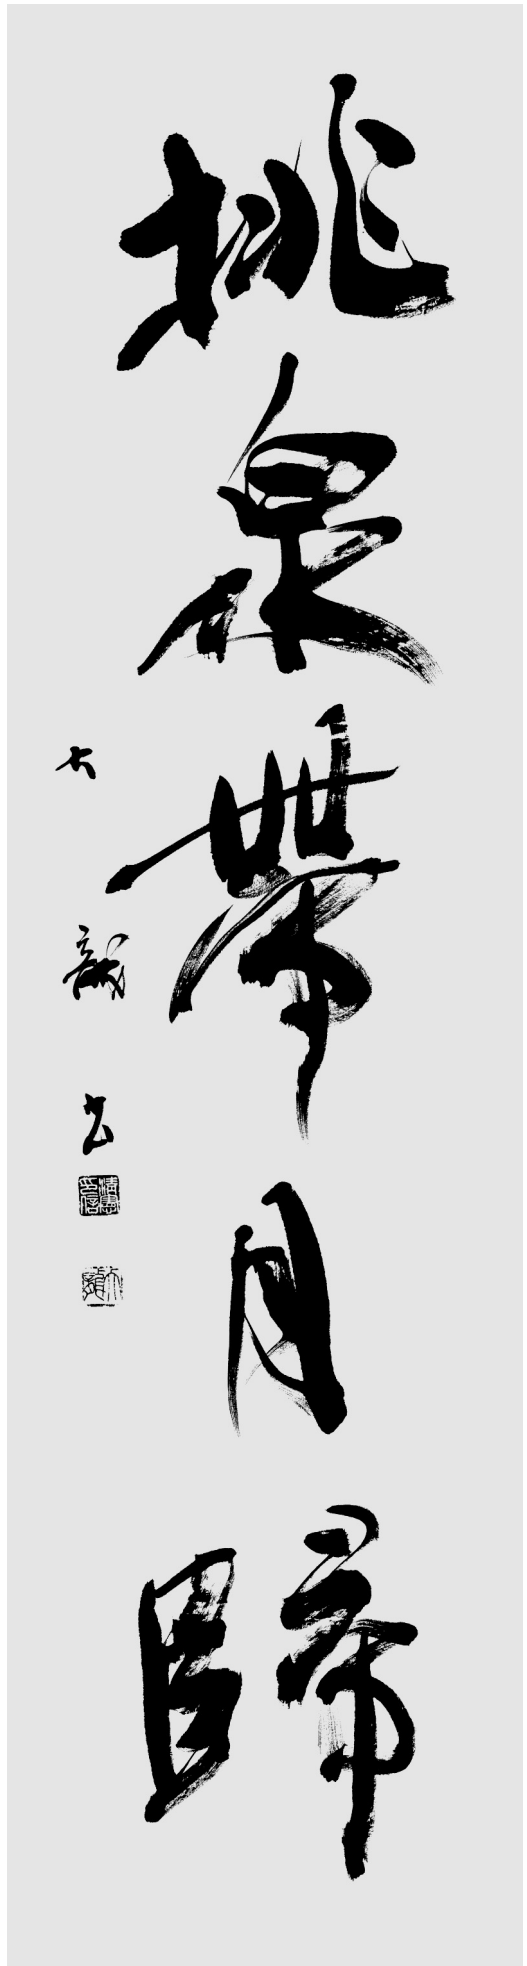 挑泉帶月歸
大龍書